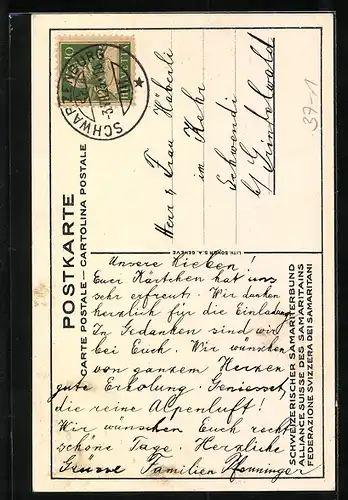 POSTKARTE
CARTE POSTALE — CARTOLINA POSTALE
SCHWARZENBURG
HELVETIA
10
Herr & Frau Häberli
im Kehr
Schwendi
b/ Grindelwald
37-1
LITH. SONOR S.A. GENÈVE
Unsere Lieben!
Euer Kärtchen hat uns
sehr erfreut. Wir danken
herzlich für die Einladung
In Gedanken sind wir
bei Euch. Wir wünschen
von ganzem Herzen
gute Erholung. Geniesset
die reine Alpenluft!
Wir wünschen Euch recht
schöne Tage. Herzliche
Grüsse Familien Pfenninger
SCHWEIZERISCHER SAMARITERBUND
ALLIANCE SUISSE DES SAMARITAINS
FEDERAZIONE SVIZZERA DEI SAMARITANI